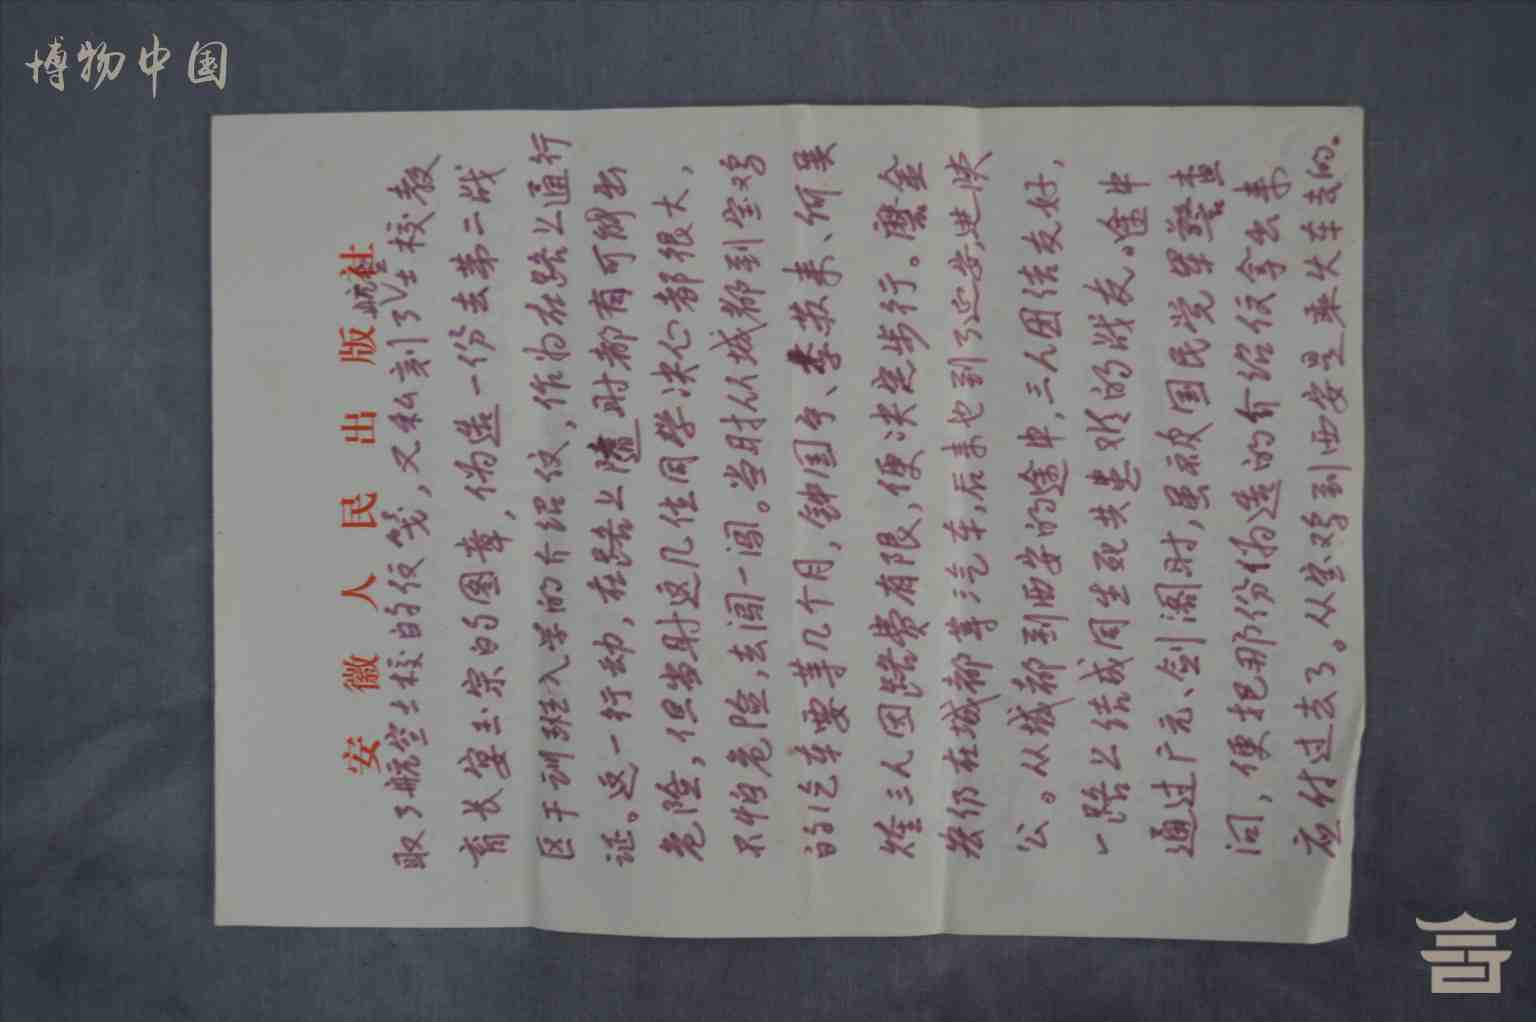 博物中国
安徽人民出版社
航空
取了航空士校的便笺，又私刻了士校教
育长宴玉宗的图章，伪造一份去第二战
区干训班入学的介绍信，作为在路上通行
证。这一行动，在路上随时都有可能出
危险，但当时这几位同学决心都很大，
不怕危险，去闯一闯。当时从城都到宝鸡
的汽车要等几个月，钟国宁、李苏来、何昊
三人因路费有限，便决定步行。詹金
仍在城都等汽车，后来也到了延安，进陕
公。从城都到西安的途中，三人团结友好，
一路上结成同生死共患难的战友。途中
通过广元、剑阁时，虽被国民党军警查
问，便把那份伪造的介绍信拿出来
应付过去了。从宝鸡到西安是乘火车去的。